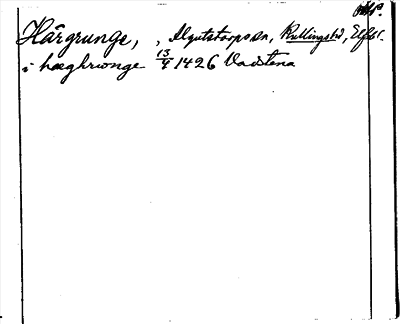 Härgrunge, , Älgutstorps sn, Kullings hd, Elfsb.
i hæghrwnge 13/9 1426 Vadstena